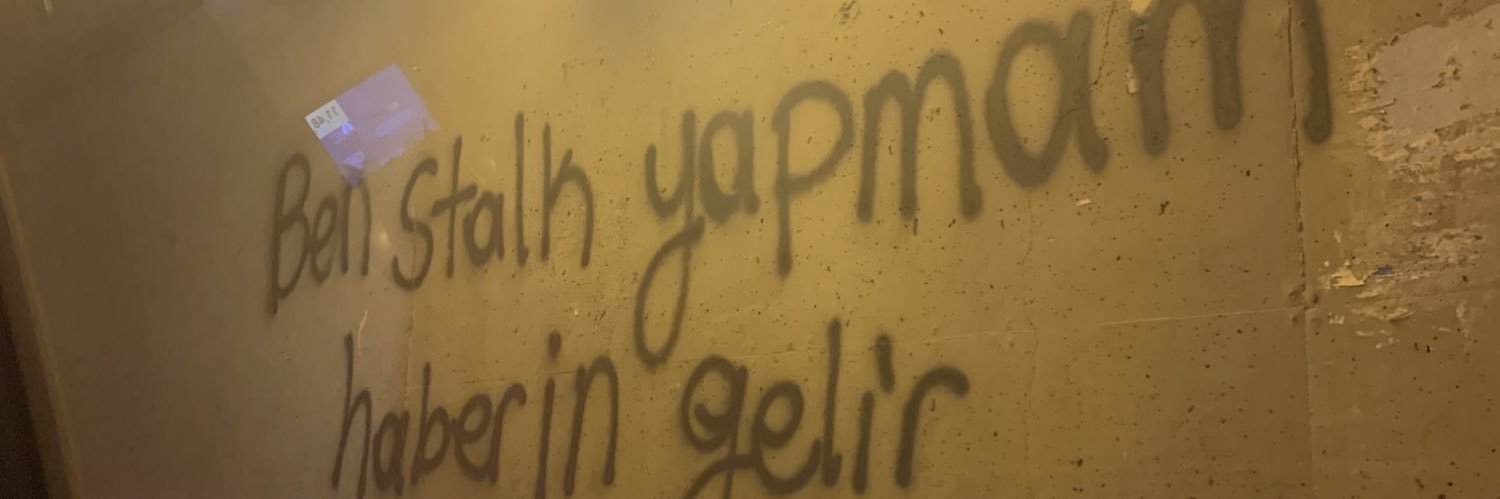 Ben Stalk yapmam
haberin gelir